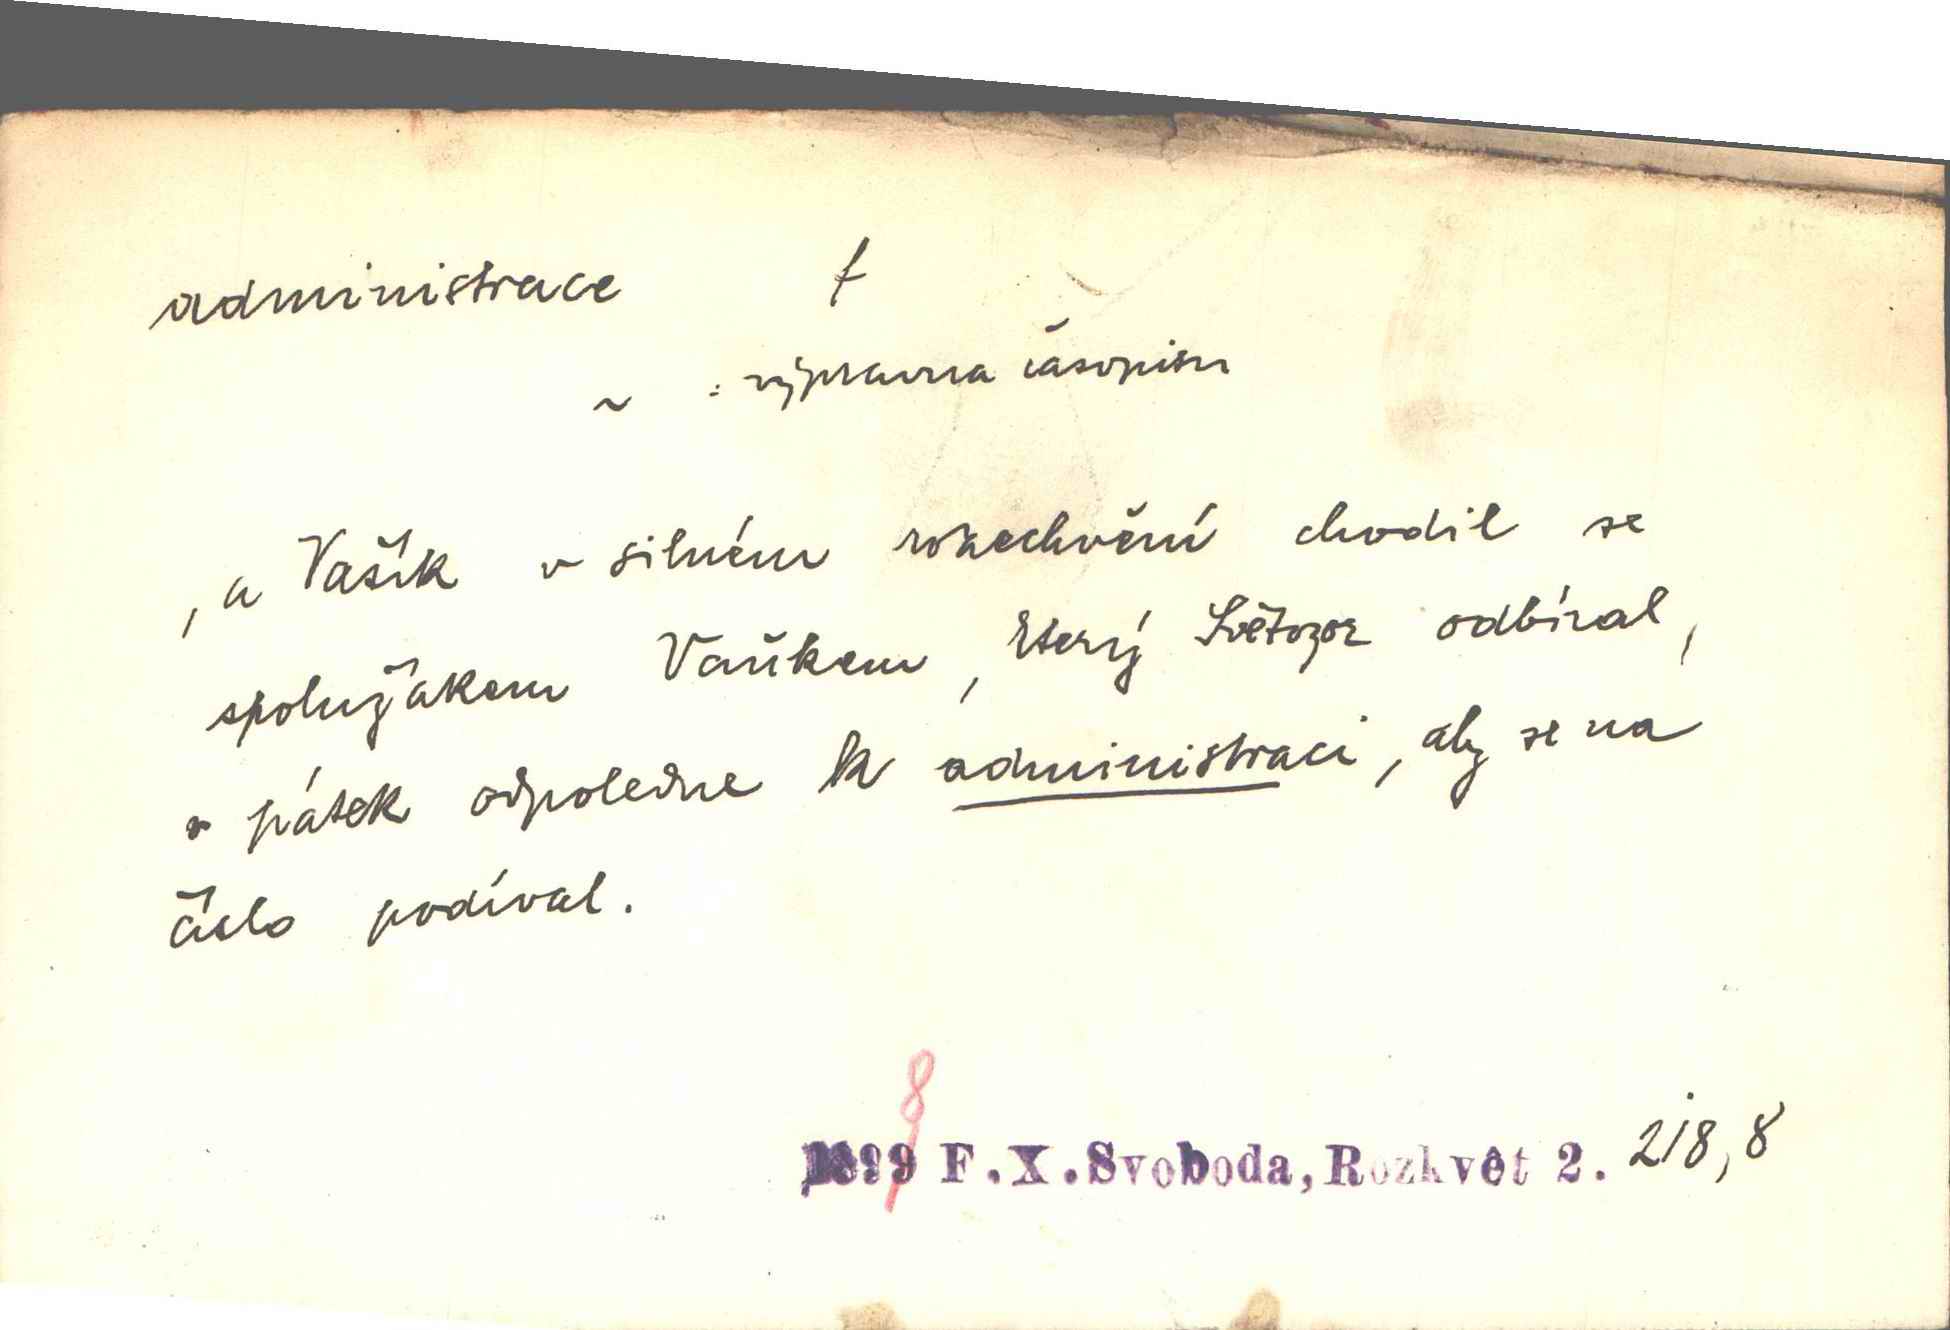 administrace f
~ : výpravna časopisu
, a Vašík v silném rozechvění chodil se
spolužákem Vaňkem, který Světozor odbíral,
v pátek odpoledne k administraci, aby se na
číslo podíval.
8
1899 F.X.Svoboda, Rozkvět 2. 218,8